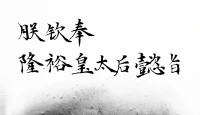 朕钦奉
隆裕皇太后懿旨